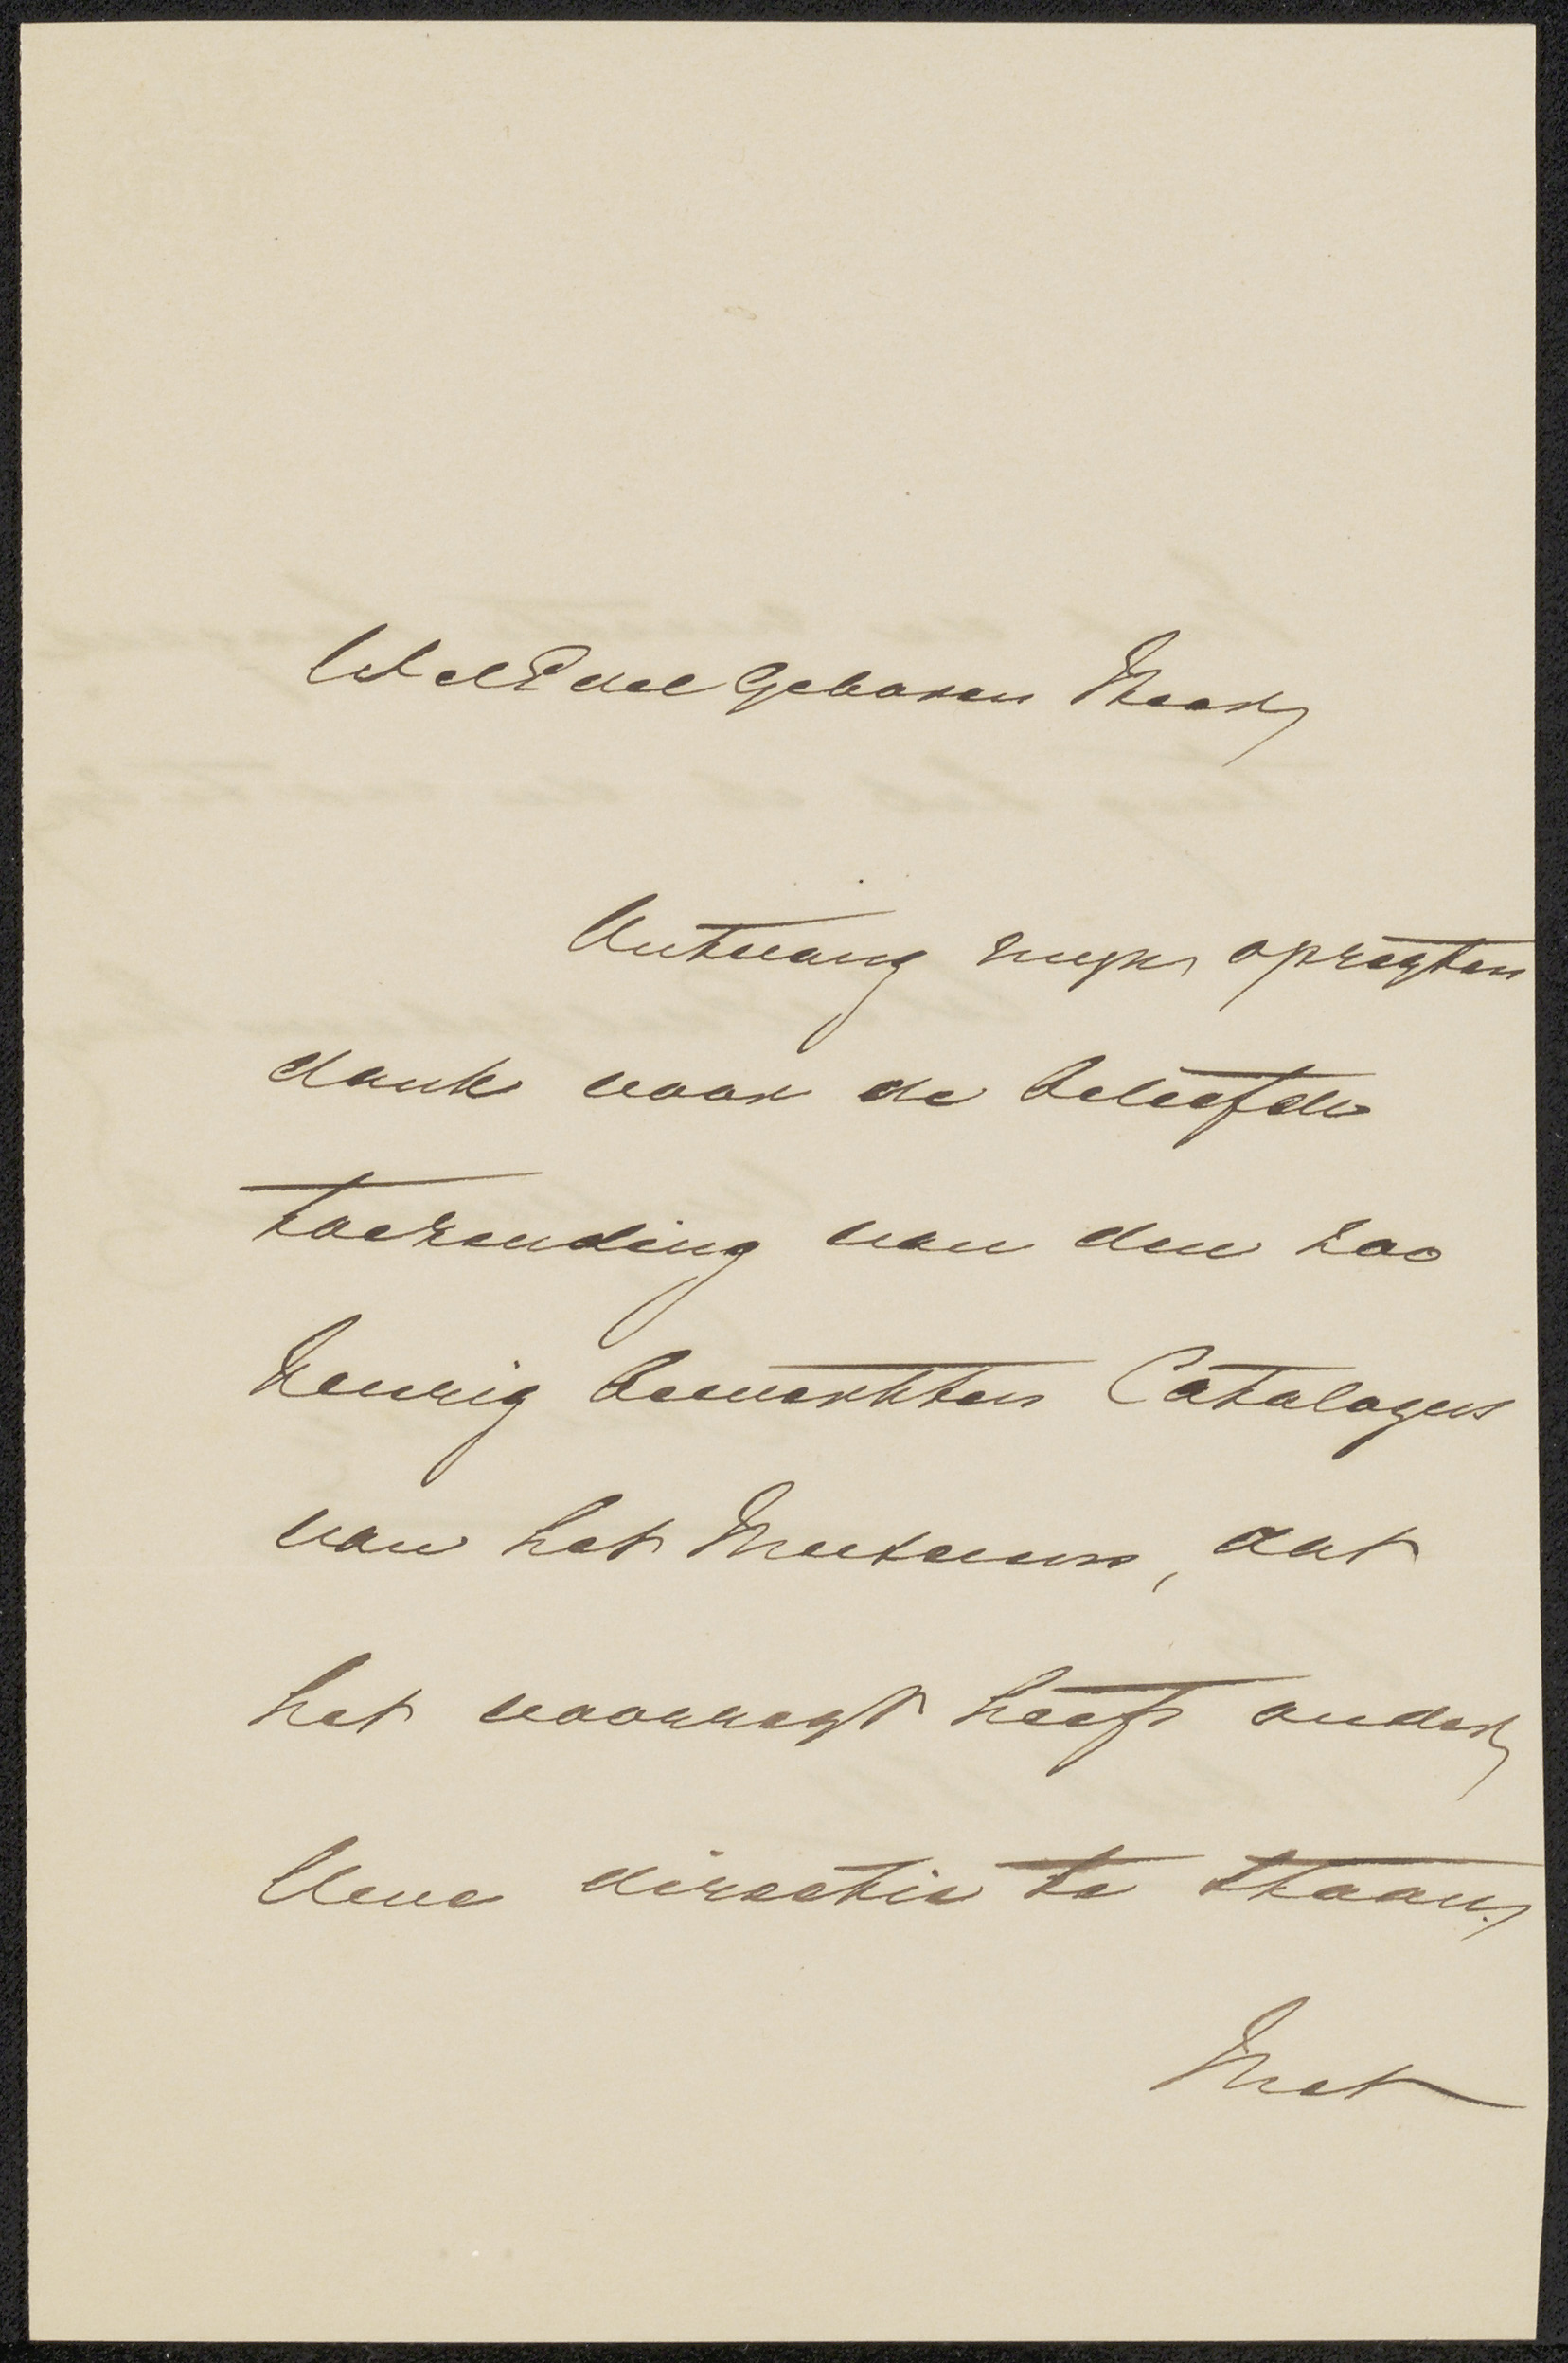 WelEdelGeboren Heer,
Ontvang mijn opregten
dank voor de beleefde
toezending van den zoo
keurig bewerkten Catalogus
van het Museum, dat
het voorregt heeft onder
Uwe directie te staan.
Met